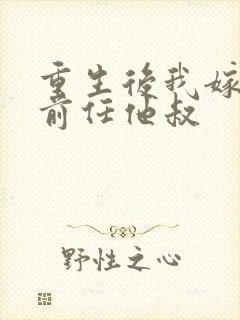 重生後我嫁
前任他叔
野性之心